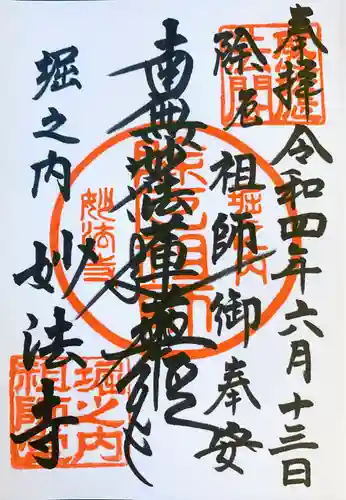 奉拝 令和四年六月十三日
除厄 祖師御奉安
南無妙法蓮華経
堀之内 妙法寺
妙法寺
堀之内